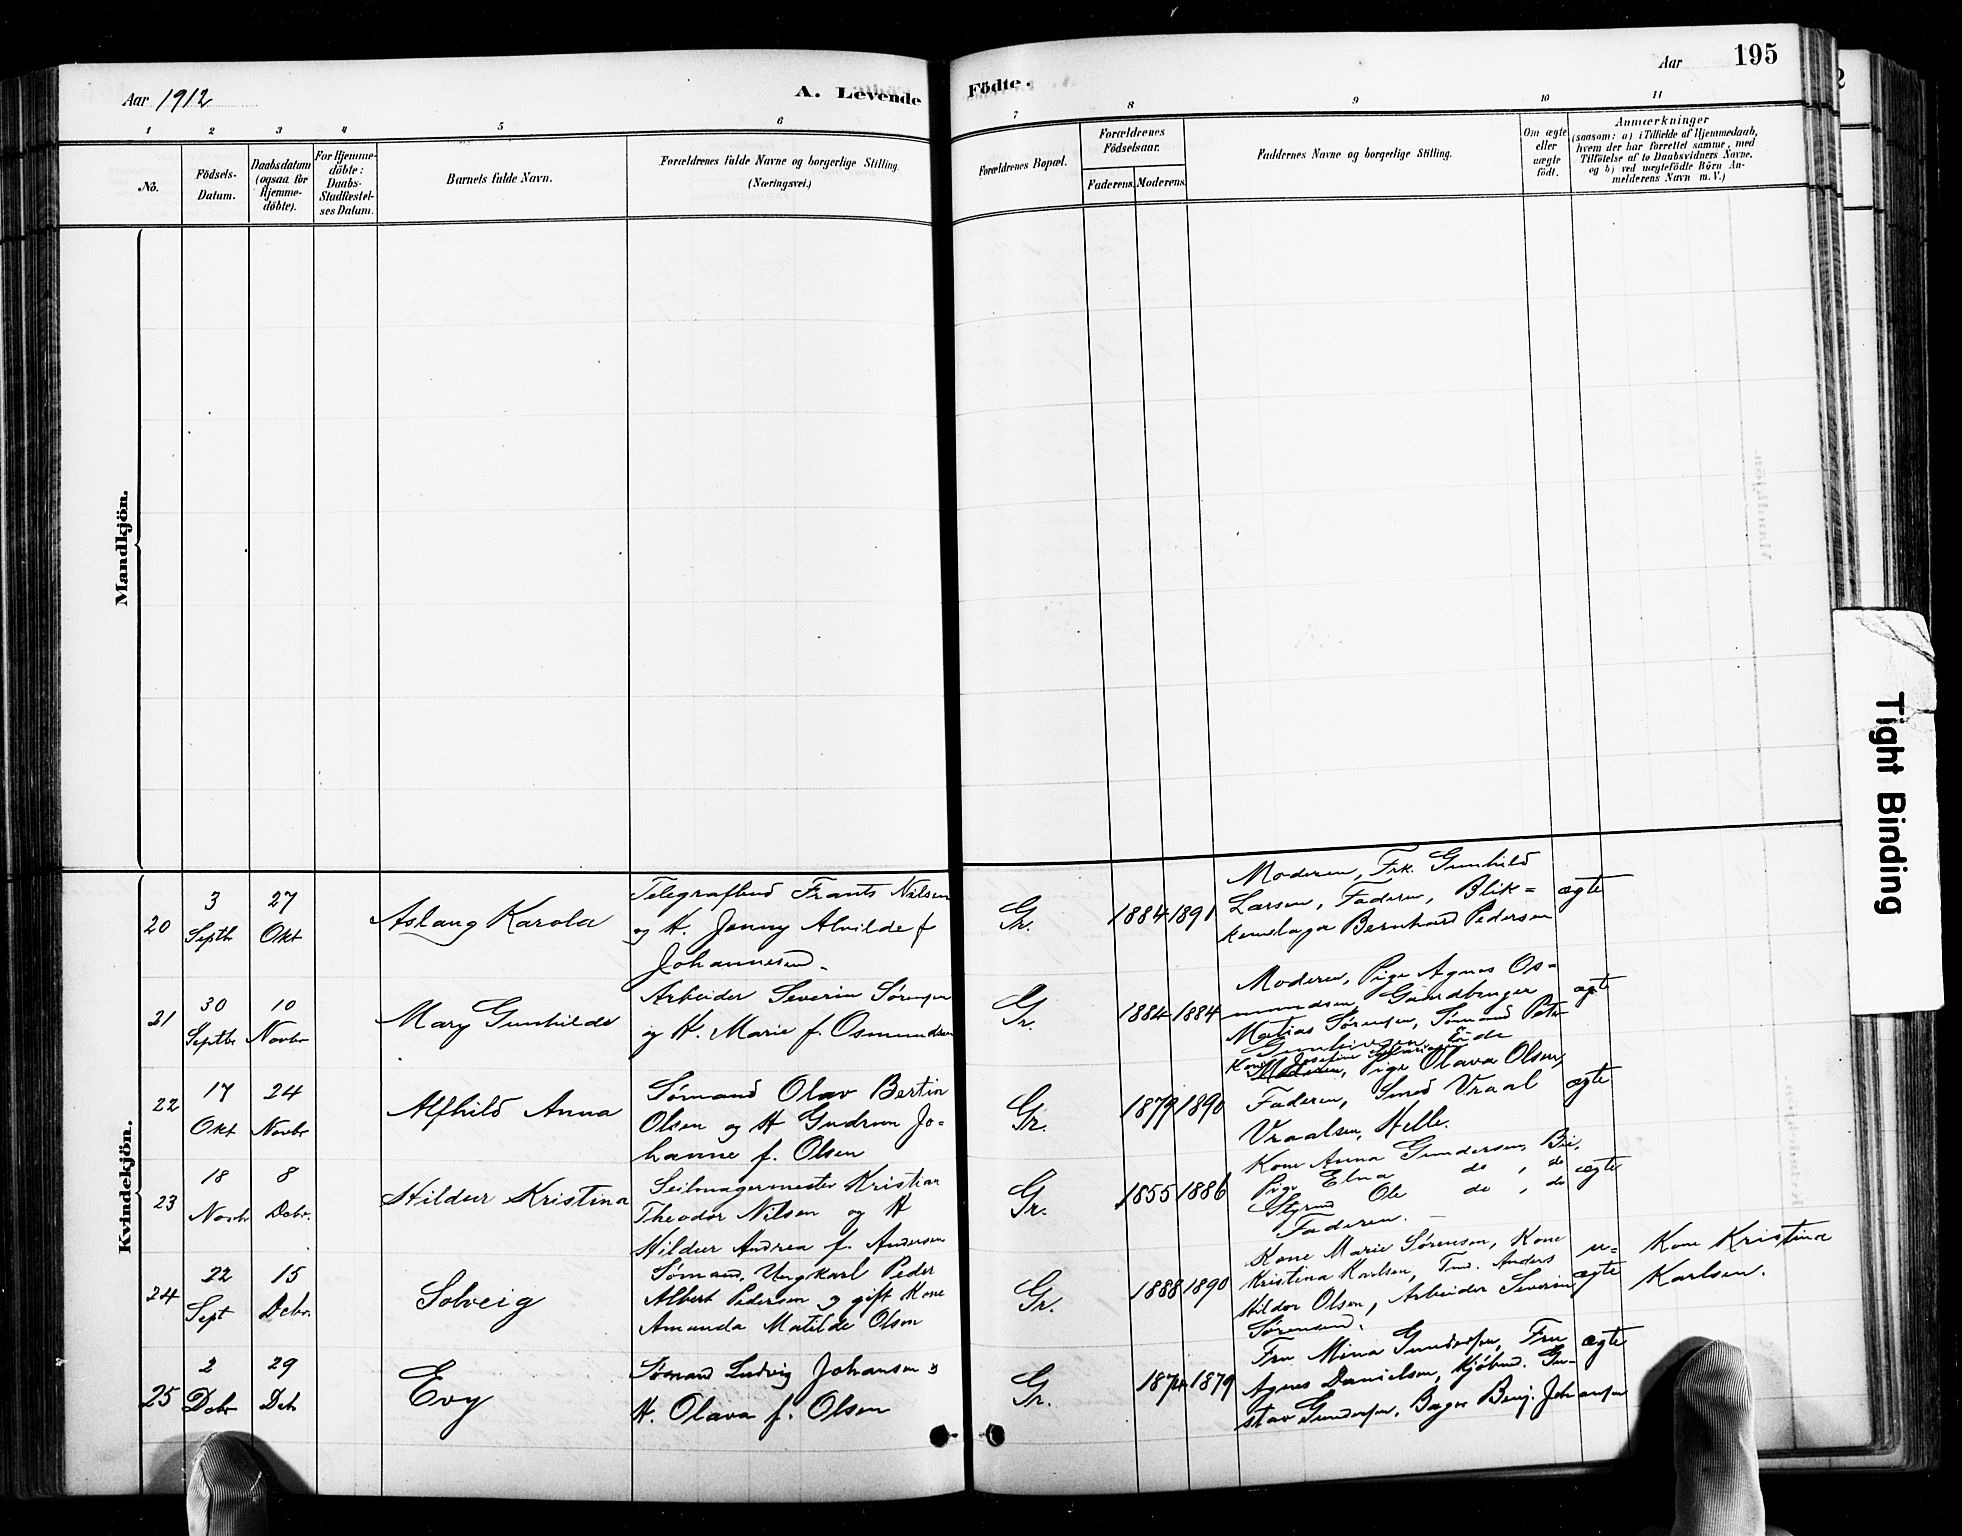 Aar 1912
A. Levende
Födte.
Aar
195
1 2 3 4 5 6 7 8 9 10 11
No.
Födsels-Datum.
Daabsdatum (ogsaa for Hjemme-döbte).
For Hjemme-döbte: Daabs-Stadfæstel-ses Datum.
Barnets fulde Navn.
Forældrenes fulde Navne og borgerlige Stilling.
(Næringsvei.)
Forældrenes Bopæl.
Forældrenes Födselsaar.
Faderens. Moderens.
Faddernes Navne og borgerlige Stilling.
Om ægte eller uægte födt.
Anmærkninger
(saasom: a) i Tilfælde af Hjemmedaab,
hvem der har forrettet samme, med
Tilföielse af to Daabsvidners Navne,
og b) ved uægtefödte Börn An-
melderens Navn m. V.)
Mandkjön.
Kvindekjön.
20
3 Septbr
27 Okt
Aslaug Karola
Telegrafbud Frants Nilsen
og H. Jenny Alvilde f
Johannesen.
Gr.
1884 1891
Moderen, Frk. Gunhild
Larsen, Faderen, Blik=
kenslager Bernhard Pedersen
ægte
21
30 Septbr
10 Novbr
Mary Gunhilde
Arbeider Severin Sørensen
og H. Marie f. Osmundsen
Gr.
1884 1884
Moderen, Pige Agnes Os=
mundsen, Gaardbruger
Matias Sørensen, Sømand Peter
Kone Josefine
ægte
22
17 Okt
24 Novbr
Alfhild Anna
Sømand Olav Bertin
Olsen og H Gudrun Jo=
hanne f. Olsen
Gr.
1879 1890
Moderen, Pige Olava Olsen,
Faderen, Smed Vraal
Vraalsen, Helle.
ægte
23
18 Novbr
8 Debr.
Hildur Kristina
Seilmagermester Kristian
Theodor Nilsen og H
Hildur Andrea f. Andersen
Gr.
1855 1886
Kone Anna Gundersen, Bie.
Pige Elna do, do
Styrmd Ole do, do
Faderen.
ægte
24
22 Sept
15 Debr.
Solveig
Sømand, Ungkarl Peder
Albert Pedersen og gift Kone
Amanda Matilde Olsen
Gr.
1888 1890
Kone Marie Sørensen, Kone
Kristina Karlsen, Tmd. Anders
Hildor Olsen, Arbeider Severin
Sørensen.
u=
ægte
Kone Kristina
Karlsen.
25
2 Debr
29 Deb
Evy
Sømand Ludvig Johansen og
H. Olava f. Olsen
Gr.
1874 1879
Fru Mina Gundersen, Fru
Agnes Danielsen, Kjøbmd. Gu=
stav Gundersen, Bager Benj. Johansen
ægte
Tight Binding